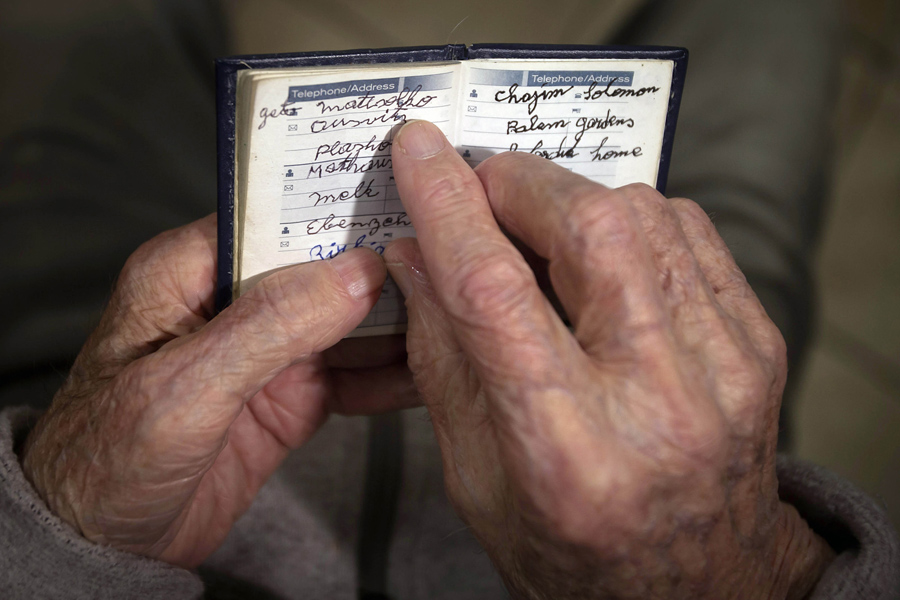 Telephone/Address
geto Mattsolho
Ausvitz
Plasho
Mathaus
Melk
Ebenzeh
Telephone/Address
Chajim Solomon
Palam gardens
home